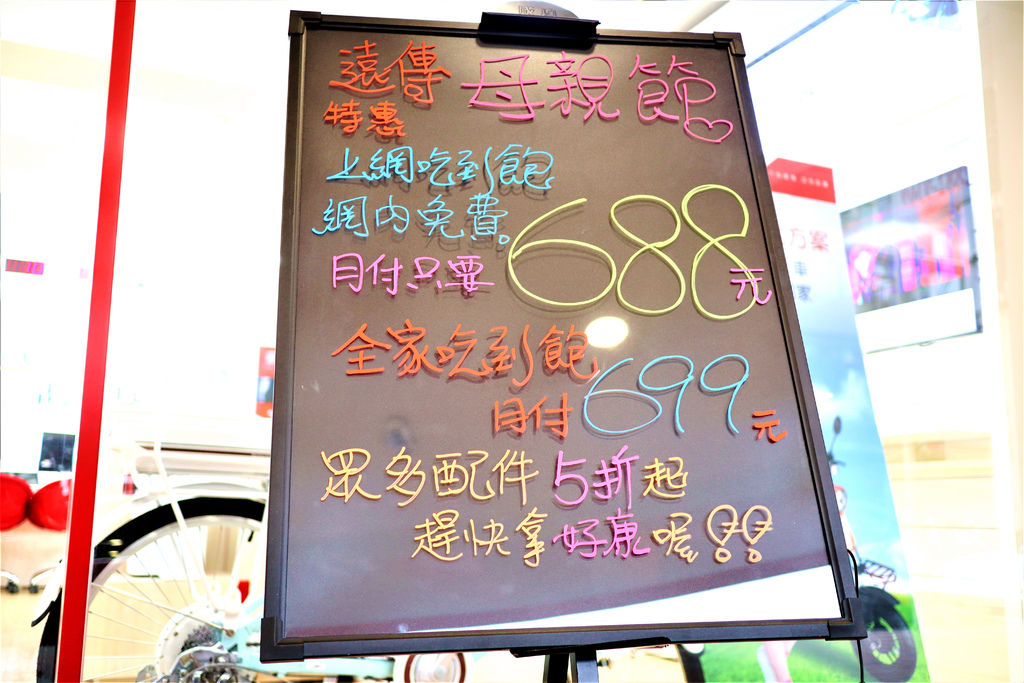 遠傳 母親節
特惠
上網吃到飽
網內免費。
月付只要 688元
全家吃到飽
月付 699元
眾多配件5折起
趕快拿好康喔!!
方案
車
家